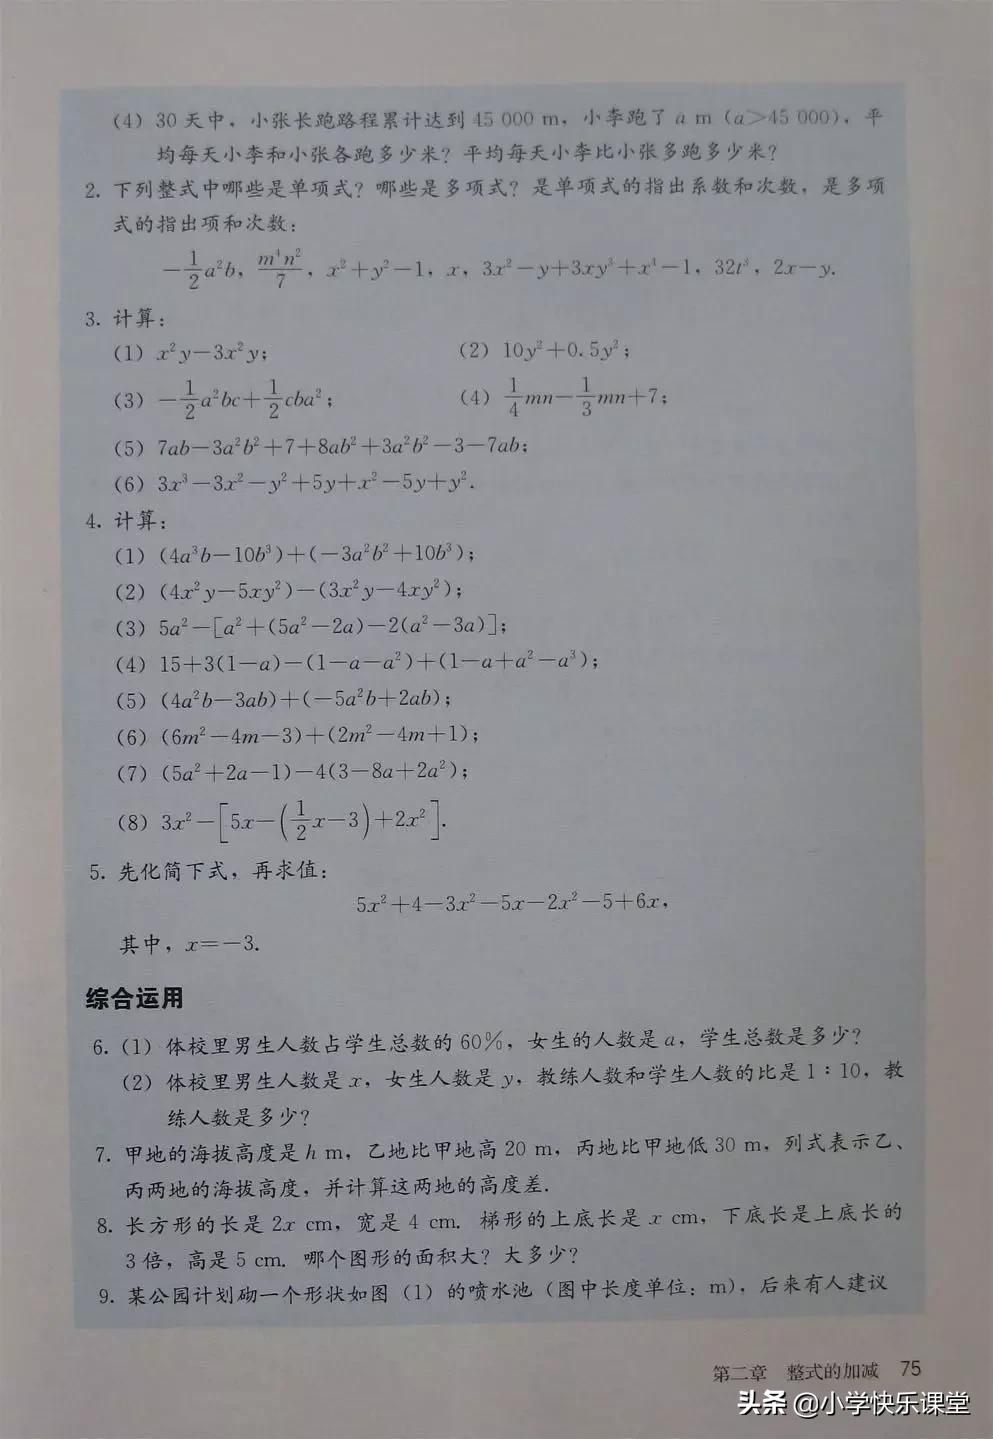 (4) 30 天中，小张长跑路程累计达到 45 000 m，小李跑了 a m（a＞45 000），平
均每天小李和小张各跑多少米？平均每天小李比小张多跑多少米？
2. 下列整式中哪些是单项式？哪些是多项式？是单项式的指出系数和次数，是多项
式的指出项和次数：
−1/2 a²b， m⁴n²/7， x²+y²−1， x， 3x²−y+3xy³+x⁴−1， 32t³， 2x−y.
3. 计算：
(1) x²y−3x²y； (2) 10y²+0.5y²；
(3) −1/2 a²bc+1/2 cba²； (4) 1/4 mn−1/3 mn+7；
(5) 7ab−3a²b²+7+8ab²+3a²b²−3−7ab；
(6) 3x³−3x²−y²+5y+x²−5y+y².
4. 计算：
(1) (4a³b−10b³)+(−3a²b²+10b³)；
(2) (4x²y−5xy²)−(3x²y−4xy²)；
(3) 5a²−[a²+(5a²−2a)−2(a²−3a)]；
(4) 15+3(1−a)−(1−a−a²)+(1−a+a²−a³)；
(5) (4a²b−3ab)+(−5a²b+2ab)；
(6) (6m²−4m−3)+(2m²−4m+1)；
(7) (5a²+2a−1)−4(3−8a+2a²)；
(8) 3x²−[5x−(1/2 x−3)+2x²].
5. 先化简下式，再求值：
5x²+4−3x²−5x−2x²−5+6x，
其中，x=−3.
综合运用
6. (1) 体校里男生人数占学生总数的 60%，女生的人数是 a，学生总数是多少？
(2) 体校里男生人数是 x，女生人数是 y，教练人数和学生人数的比是 1∶10，教
练人数是多少？
7. 甲地的海拔高度是 h m，乙地比甲地高 20 m，丙地比甲地低 30 m，列式表示乙、
丙两地的海拔高度，并计算这两地的高度差.
8. 长方形的长是 2x cm，宽是 4 cm. 梯形的上底长是 x cm，下底长是上底长的
3 倍，高是 5 cm. 哪个图形的面积大？大多少？
9. 某公园计划砌一个形状如图（1）的喷水池（图中长度单位：m），后来有人建议
第二章 整式的加减 75
头条 @小学快乐课堂